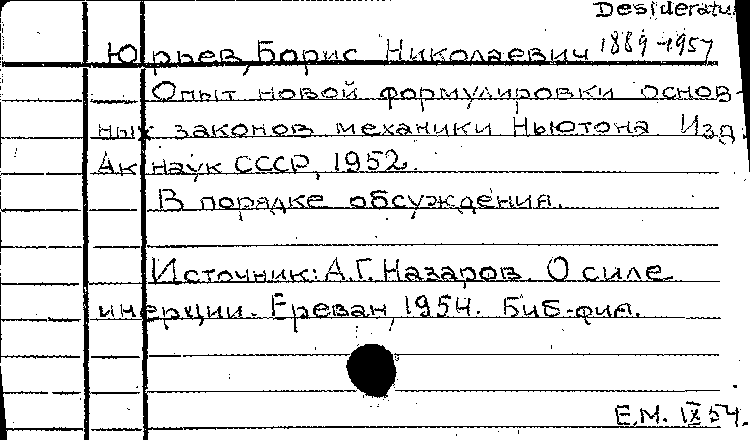 Desiderata
Юрьев, Борис Николаевич 1889-1957
Опыт новой формулировки основ-
ных законов механики Ньютона Изд.
Ак наук СССР, 1952.
В порядке обсуждения.
Источник: А.Г. Назаров. О силе
инерции. Ереван, 1954. Биб-фия.
Е.М. IX 54.